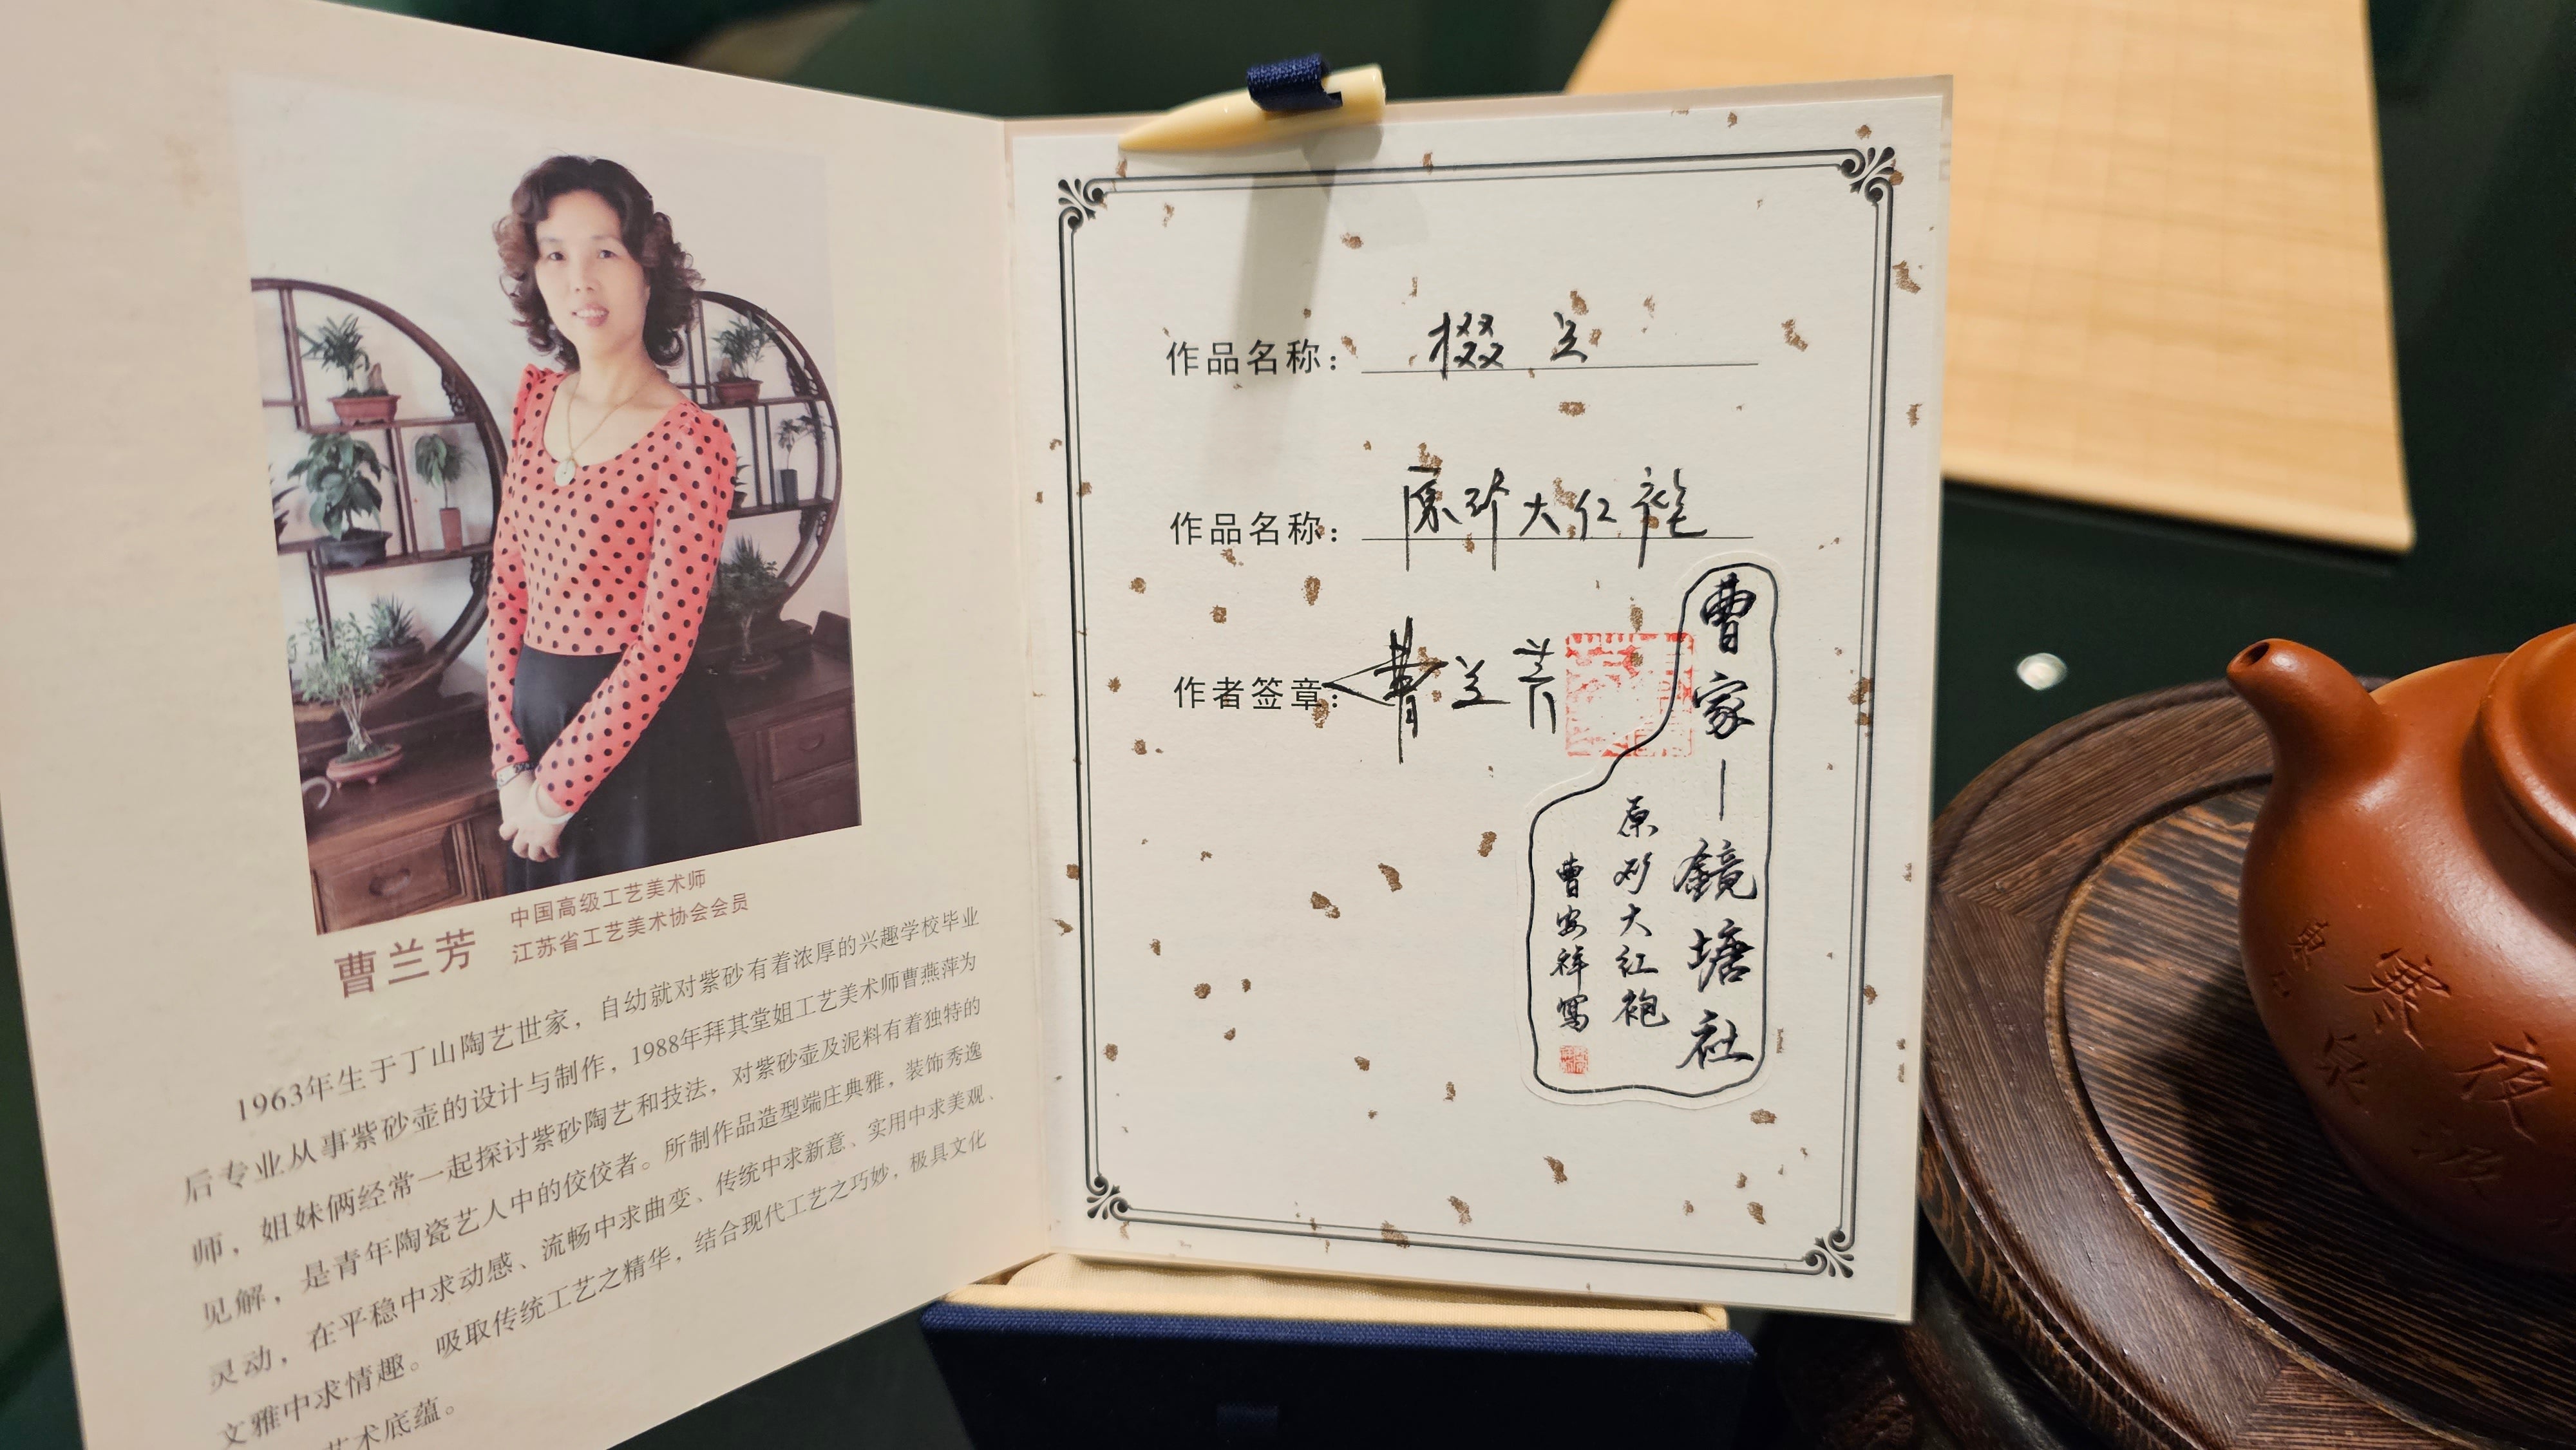 曹兰芳
中国高级工艺美术师
江苏省工艺美术协会会员
1963年生于丁山陶艺世家，自幼就对紫砂有着浓厚的兴趣学校毕业
后专业从事紫砂壶的设计与制作，1988年拜其堂姐工艺美术师曹燕萍为
师，姐妹俩经常一起探讨紫砂陶艺和技法，对紫砂壶及泥料有着独特的
见解，是青年陶瓷艺人中的佼佼者。所制作品造型端庄典雅，装饰秀逸
灵动，在平稳中求动感、流畅中求曲变、传统中求新意、实用中求美观、
文雅中求情趣。吸取传统工艺之精华，结合现代工艺之巧妙，极具文化
艺术底蕴。
作品名称：掇
作品名称：原砂大红袍
作者签章：曹兰芳
曹家—鏡塘社
原砂大红袍
曹安祥寫
寒
夜
泉